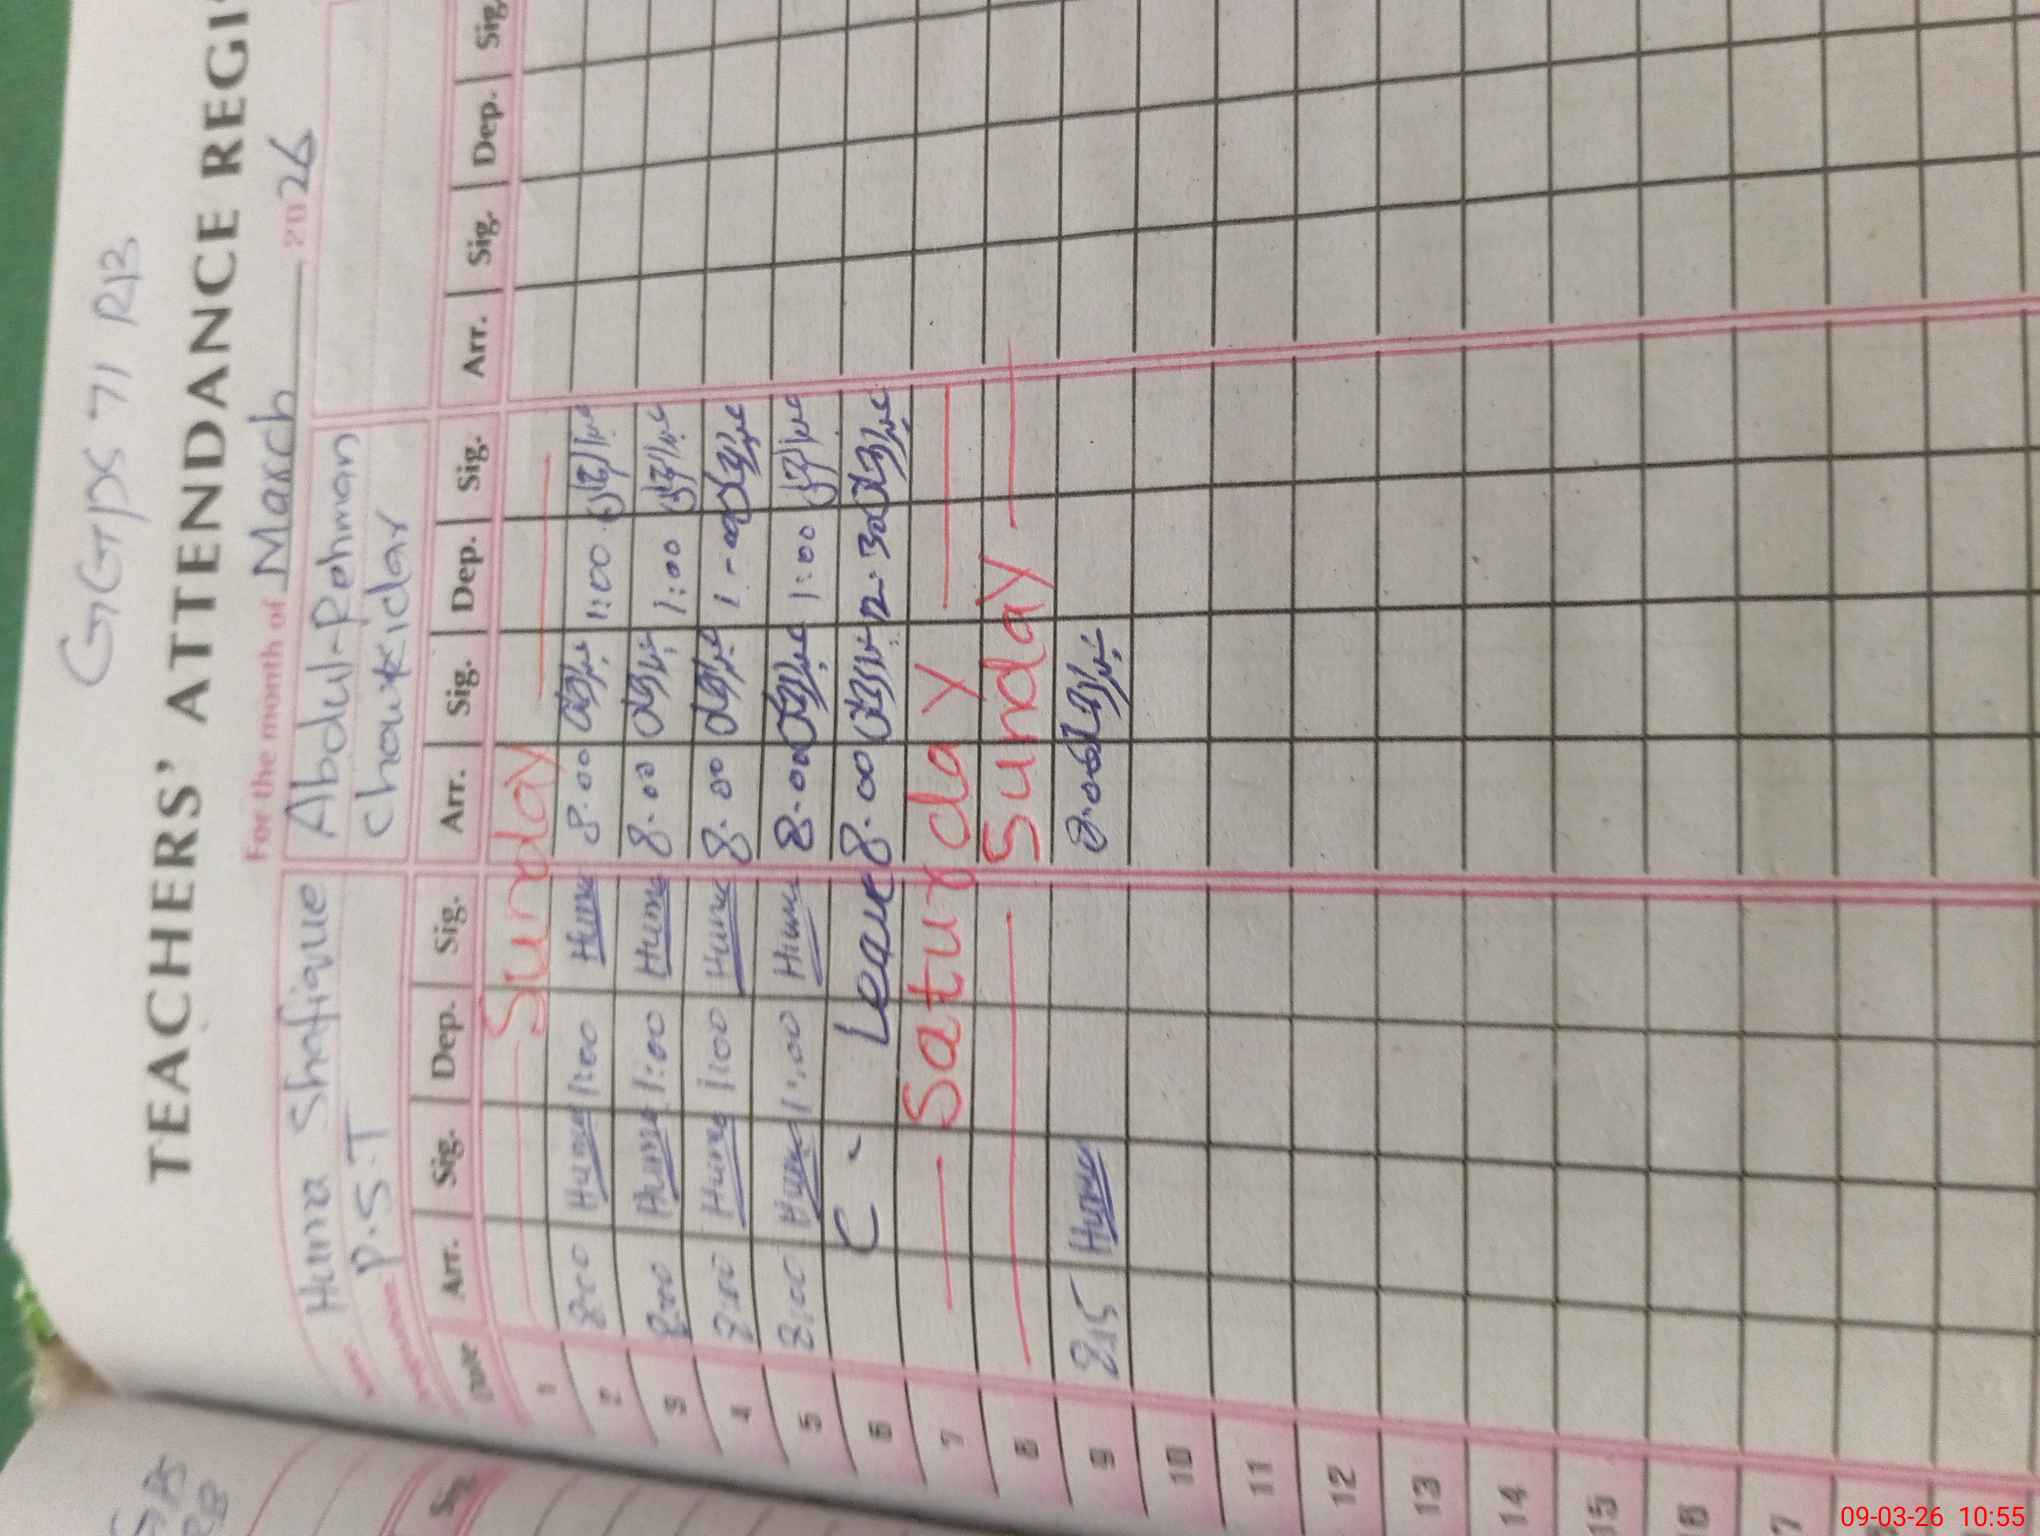 GGPS 71 RB
TEACHERS' ATTENDANCE REGI
For the month of March 2026
Huma Shafique Abdul-Rehman
P.S.T chowkidar
Date Arr. Sig. Dep. Sig. Arr. Sig. Dep. Sig. Arr. Sig. Dep. Sig.
1 Sunday
2 8:00 Huma 1:00 Huma 8.00 1:00
3 8:00 Huma 1:00 Huma 8.00 1:00
4 8:00 Huma 1:00 Huma 8.00 1-00
5 8:00 Huma 1:00 Huma 8.00 1:00
6 C. Leave 8.00 12.30
7 Saturday
8 Sunday
9 8:15 Huma 8.00
10
11
12
13
14
15
16
7
Sig.
09-03-26 10:55